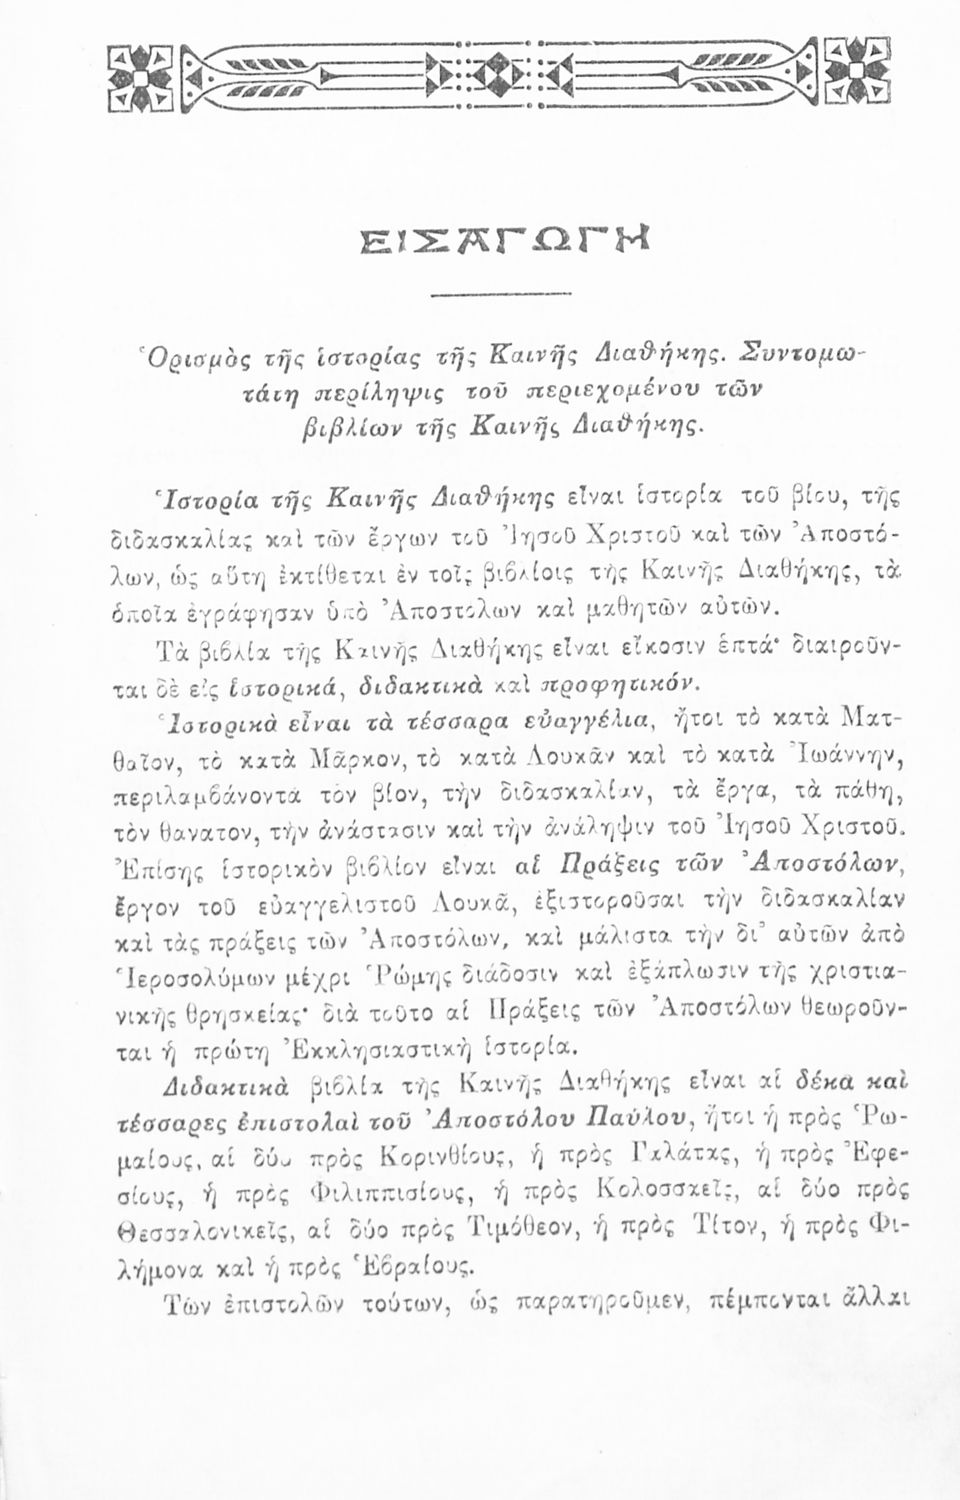 ΕΙΣΑΓΩΓΗ
Ὁρισμὸς τῆς ἱστορίας τῆς Καινῆς Διαθήκης. Συντομω-
τάτη περίληψις τοῦ περιεχομένου τῶν
βιβλίων τῆς Καινῆς Διαθήκης.
Ἱστορία τῆς Καινῆς Διαθήκης εἶναι ἱστορία τοῦ βίου, τῆς
διδασκαλίας καὶ τῶν ἔργων τοῦ Ἰησοῦ Χριστοῦ καὶ τῶν Ἀποστό-
λων, ὡς αὕτη ἐκτίθεται ἐν τοῖς βιβλίοις τῆς Καινῆς Διαθήκης, τὰ
ὁποῖα ἐγράφησαν ὑπὸ Ἀποστόλων καὶ μαθητῶν αὐτῶν.
Τὰ βιβλία τῆς Καινῆς Διαθήκης εἶναι εἴκοσιν ἑπτά· διαιροῦν-
ται δὲ εἰς ἱστορικά, διδακτικὰ καὶ προφητικόν.
Ἱστορικὰ εἶναι τὰ τέσσαρα εὐαγγέλια, ἤτοι τὸ κατὰ Ματ-
θαῖον, τὸ κατὰ Μᾶρκον, τὸ κατὰ Λουκᾶν καὶ τὸ κατὰ Ἰωάννην,
περιλαμβάνοντα τὸν βίον, τὴν διδασκαλίαν, τὰ ἔργα, τὰ πάθη,
τὸν θάνατον, τὴν ἀνάστασιν καὶ τὴν ἀνάληψιν τοῦ Ἰησοῦ Χριστοῦ.
Ἐπίσης ἱστορικὸν βιβλίον εἶναι αἱ Πράξεις τῶν Ἀποστόλων,
ἔργον τοῦ εὐαγγελιστοῦ Λουκᾶ, ἐξιστοροῦσαι τὴν διδασκαλίαν
καὶ τὰς πράξεις τῶν Ἀποστόλων, καὶ μάλιστα τὴν δι' αὐτῶν ἀπὸ
Ἱεροσολύμων μέχρι Ῥώμης διάδοσιν καὶ ἐξάπλωσιν τῆς χριστια-
νικῆς θρησκείας· διὰ τοῦτο αἱ Πράξεις τῶν Ἀποστόλων θεωροῦν-
ται ἡ πρώτη Ἐκκλησιαστικὴ ἱστορία.
Διδακτικὰ βιβλία τῆς Καινῆς Διαθήκης εἶναι αἱ δέκα καὶ
τέσσαρες ἐπιστολαὶ τοῦ Ἀποστόλου Παύλου, ἤτοι ἡ πρὸς Ῥω-
μαίους, αἱ δύο πρὸς Κορινθίους, ἡ πρὸς Γαλάτας, ἡ πρὸς Ἐφε-
σίους, ἡ πρὸς Φιλιππισίους, ἡ πρὸς Κολοσσαεῖς, αἱ δύο πρὸς
Θεσσαλονικεῖς, αἱ δύο πρὸς Τιμόθεον, ἡ πρὸς Τίτον, ἡ πρὸς Φι-
λήμονα καὶ ἡ πρὸς Ἑβραίους.
Τῶν ἐπιστολῶν τούτων, ὡς παρατηροῦμεν, πέμπονται ἄλλαι